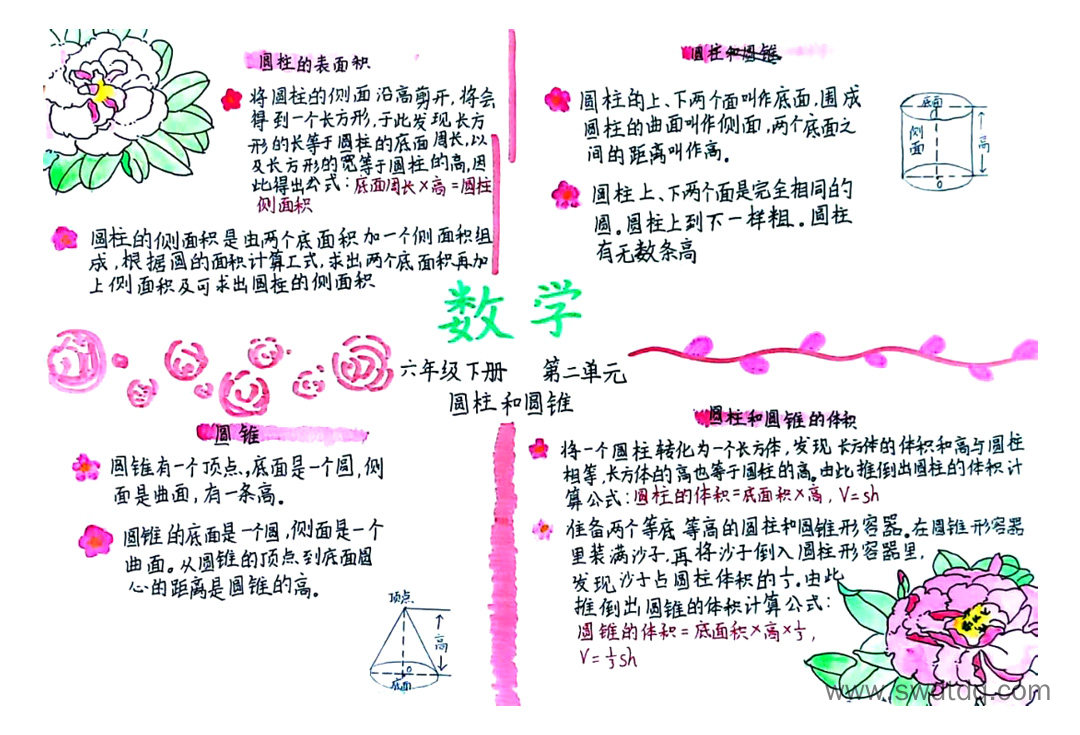 圆柱的表面积
将圆柱的侧面沿高剪开,将会
得到一个长方形,于此发现长方
形的长等于圆柱的底面周长,以
及长方形的宽等于圆柱的高,因
此得出公式:底面周长×高=圆柱
侧面积
圆柱的侧面积是由两个底面积加一个侧面积组
成,根据圆的面积计算工式,求出两个底面积再加
上侧面积及可求出圆柱的侧面积
圆柱和圆锥
圆柱的上、下两个面叫作底面,围成
圆柱的曲面叫作侧面,两个底面之
间的距离叫作高。
圆柱上、下两个面是完全相同的
圆。圆柱上到下一样粗。圆柱
有无数条高
底面
O
侧面
高
O
数学
六年级下册 第二单元
圆柱和圆锥
圆锥
圆锥有一个顶点,底面是一个圆,侧
面是曲面,有一条高。
圆锥的底面是一个圆,侧面是一个
曲面。从圆锥的顶点到底面圆
心的距离是圆锥的高。
顶点
高
O
底面
圆柱和圆锥的体积
将一个圆柱转化为一个长方体,发现长方体的体积和高与圆柱
相等,长方体的高也等于圆柱的高。由此推倒出圆柱的体积计
算公式:圆柱的体积=底面积×高,V=sh
准备两个等底、等高的圆柱和圆锥形容器。在圆锥形容器
里装满沙子,再将沙子倒入圆柱形容器里,
发现沙子占圆柱体积的⅓。由此
推倒出圆锥的体积计算公式:
圆锥的体积=底面积×高×⅓,
V=⅓sh
www.swdtdq.com